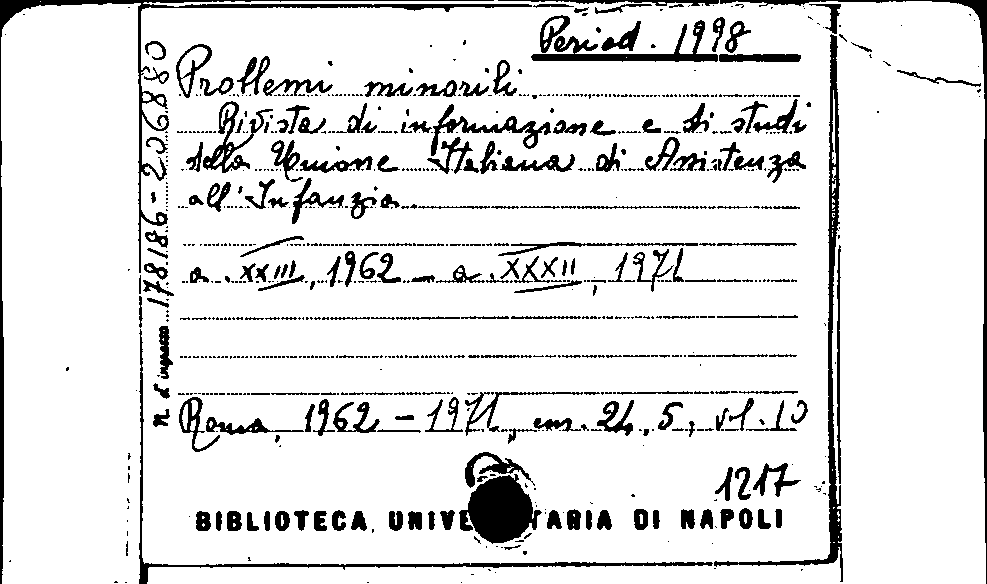 Period. 1998
Problemi minorili.
Rivista di informazione e di studi
della Unione Italiana di Assistenza
all'Infanzia.
a. XXIII, 1962 – a. XXXII, 1971
Roma, 1962 – 1971, cm. 24,5, vol. 10
1217
BIBLIOTECA UNIVE TARIA DI NAPOLI
n. d'ingresso 178186-206880